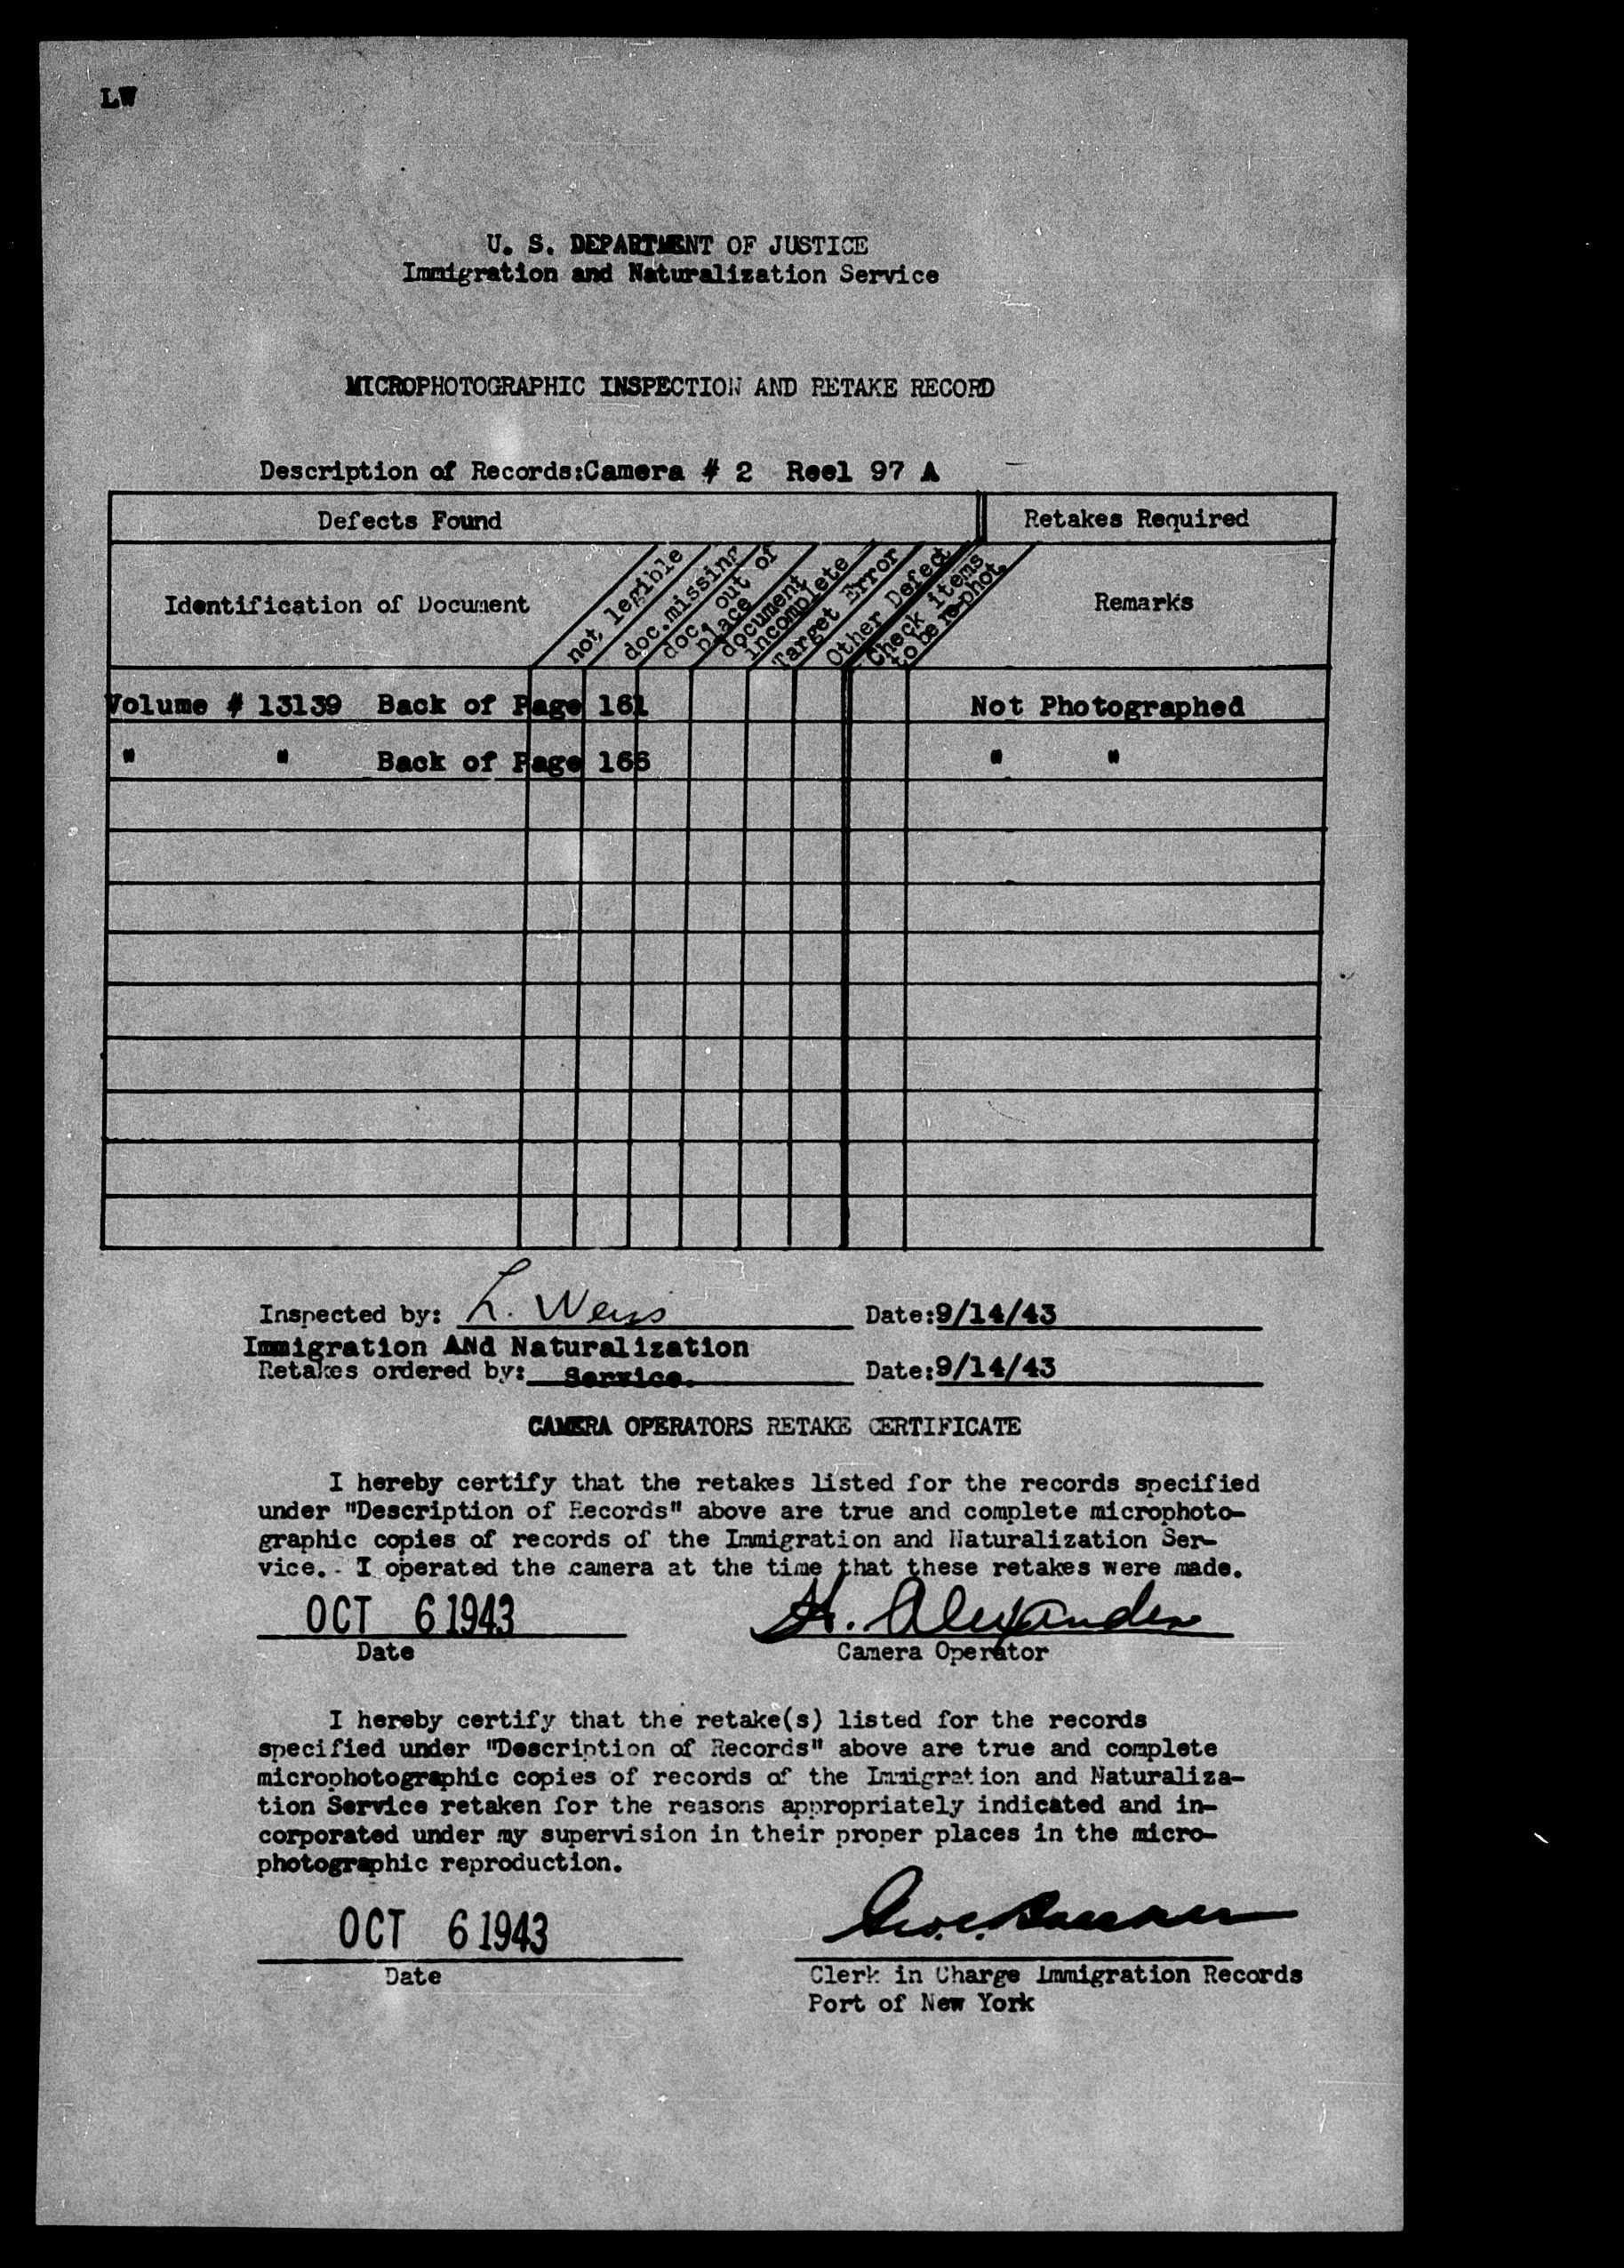 LW
U. S. DEPARTMENT OF JUSTICE
Immigration and Naturalization Service
MICROPHOTOGRAPHIC INSPECTION AND RETAKE RECORD
Description of Records:Camera # 2 Reel 97 A
Defects Found Retakes Required
Identification of Document
not legible
doc.missing
doc. out of
place
document
incomplete
Target Error
Other Defect
Check items
to be re-phot.
Remarks
Volume # 13139 Back of Page 161 Not Photographed
" " Back of Page 166 " "
Inspected by: L. Weiss Date:9/14/43
Immigration ANd Naturalization
Retakes ordered by: Service. Date:9/14/43
CAMERA OPERATORS RETAKE CERTIFICATE
I hereby certify that the retakes listed for the records specified
under "Description of Records" above are true and complete microphoto-
graphic copies of records of the Immigration and Naturalization Ser-
vice. I operated the camera at the time that these retakes were made.
OCT 6 1943 H. Alexander
Date Camera Operator
I hereby certify that the retake(s) listed for the records
specified under "Description of Records" above are true and complete
microphotographic copies of records of the Immigration and Naturaliza-
tion Service retaken for the reasons appropriately indicated and in-
corporated under my supervision in their proper places in the micro-
photographic reproduction.
OCT 6 1943
Date Clerk in Charge Immigration Records
Port of New York